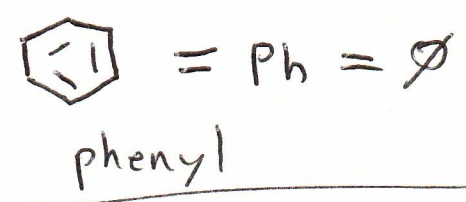 = Ph = ϕ
phenyl